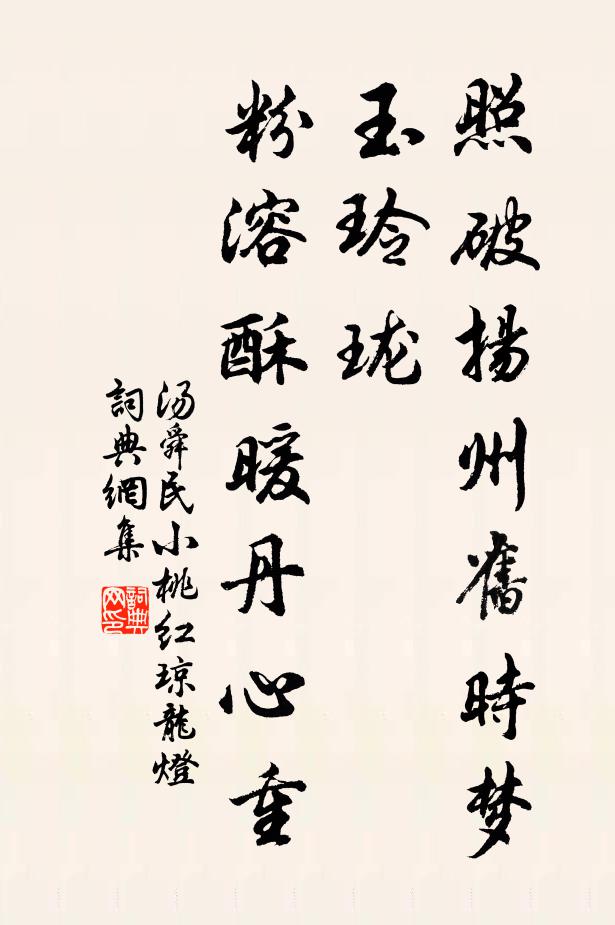 照破揚州舊時梦
玉玲珑
粉溶酥暖丹心重
汤舜民小桃红琼龍燈
詞典網集
詞典网印